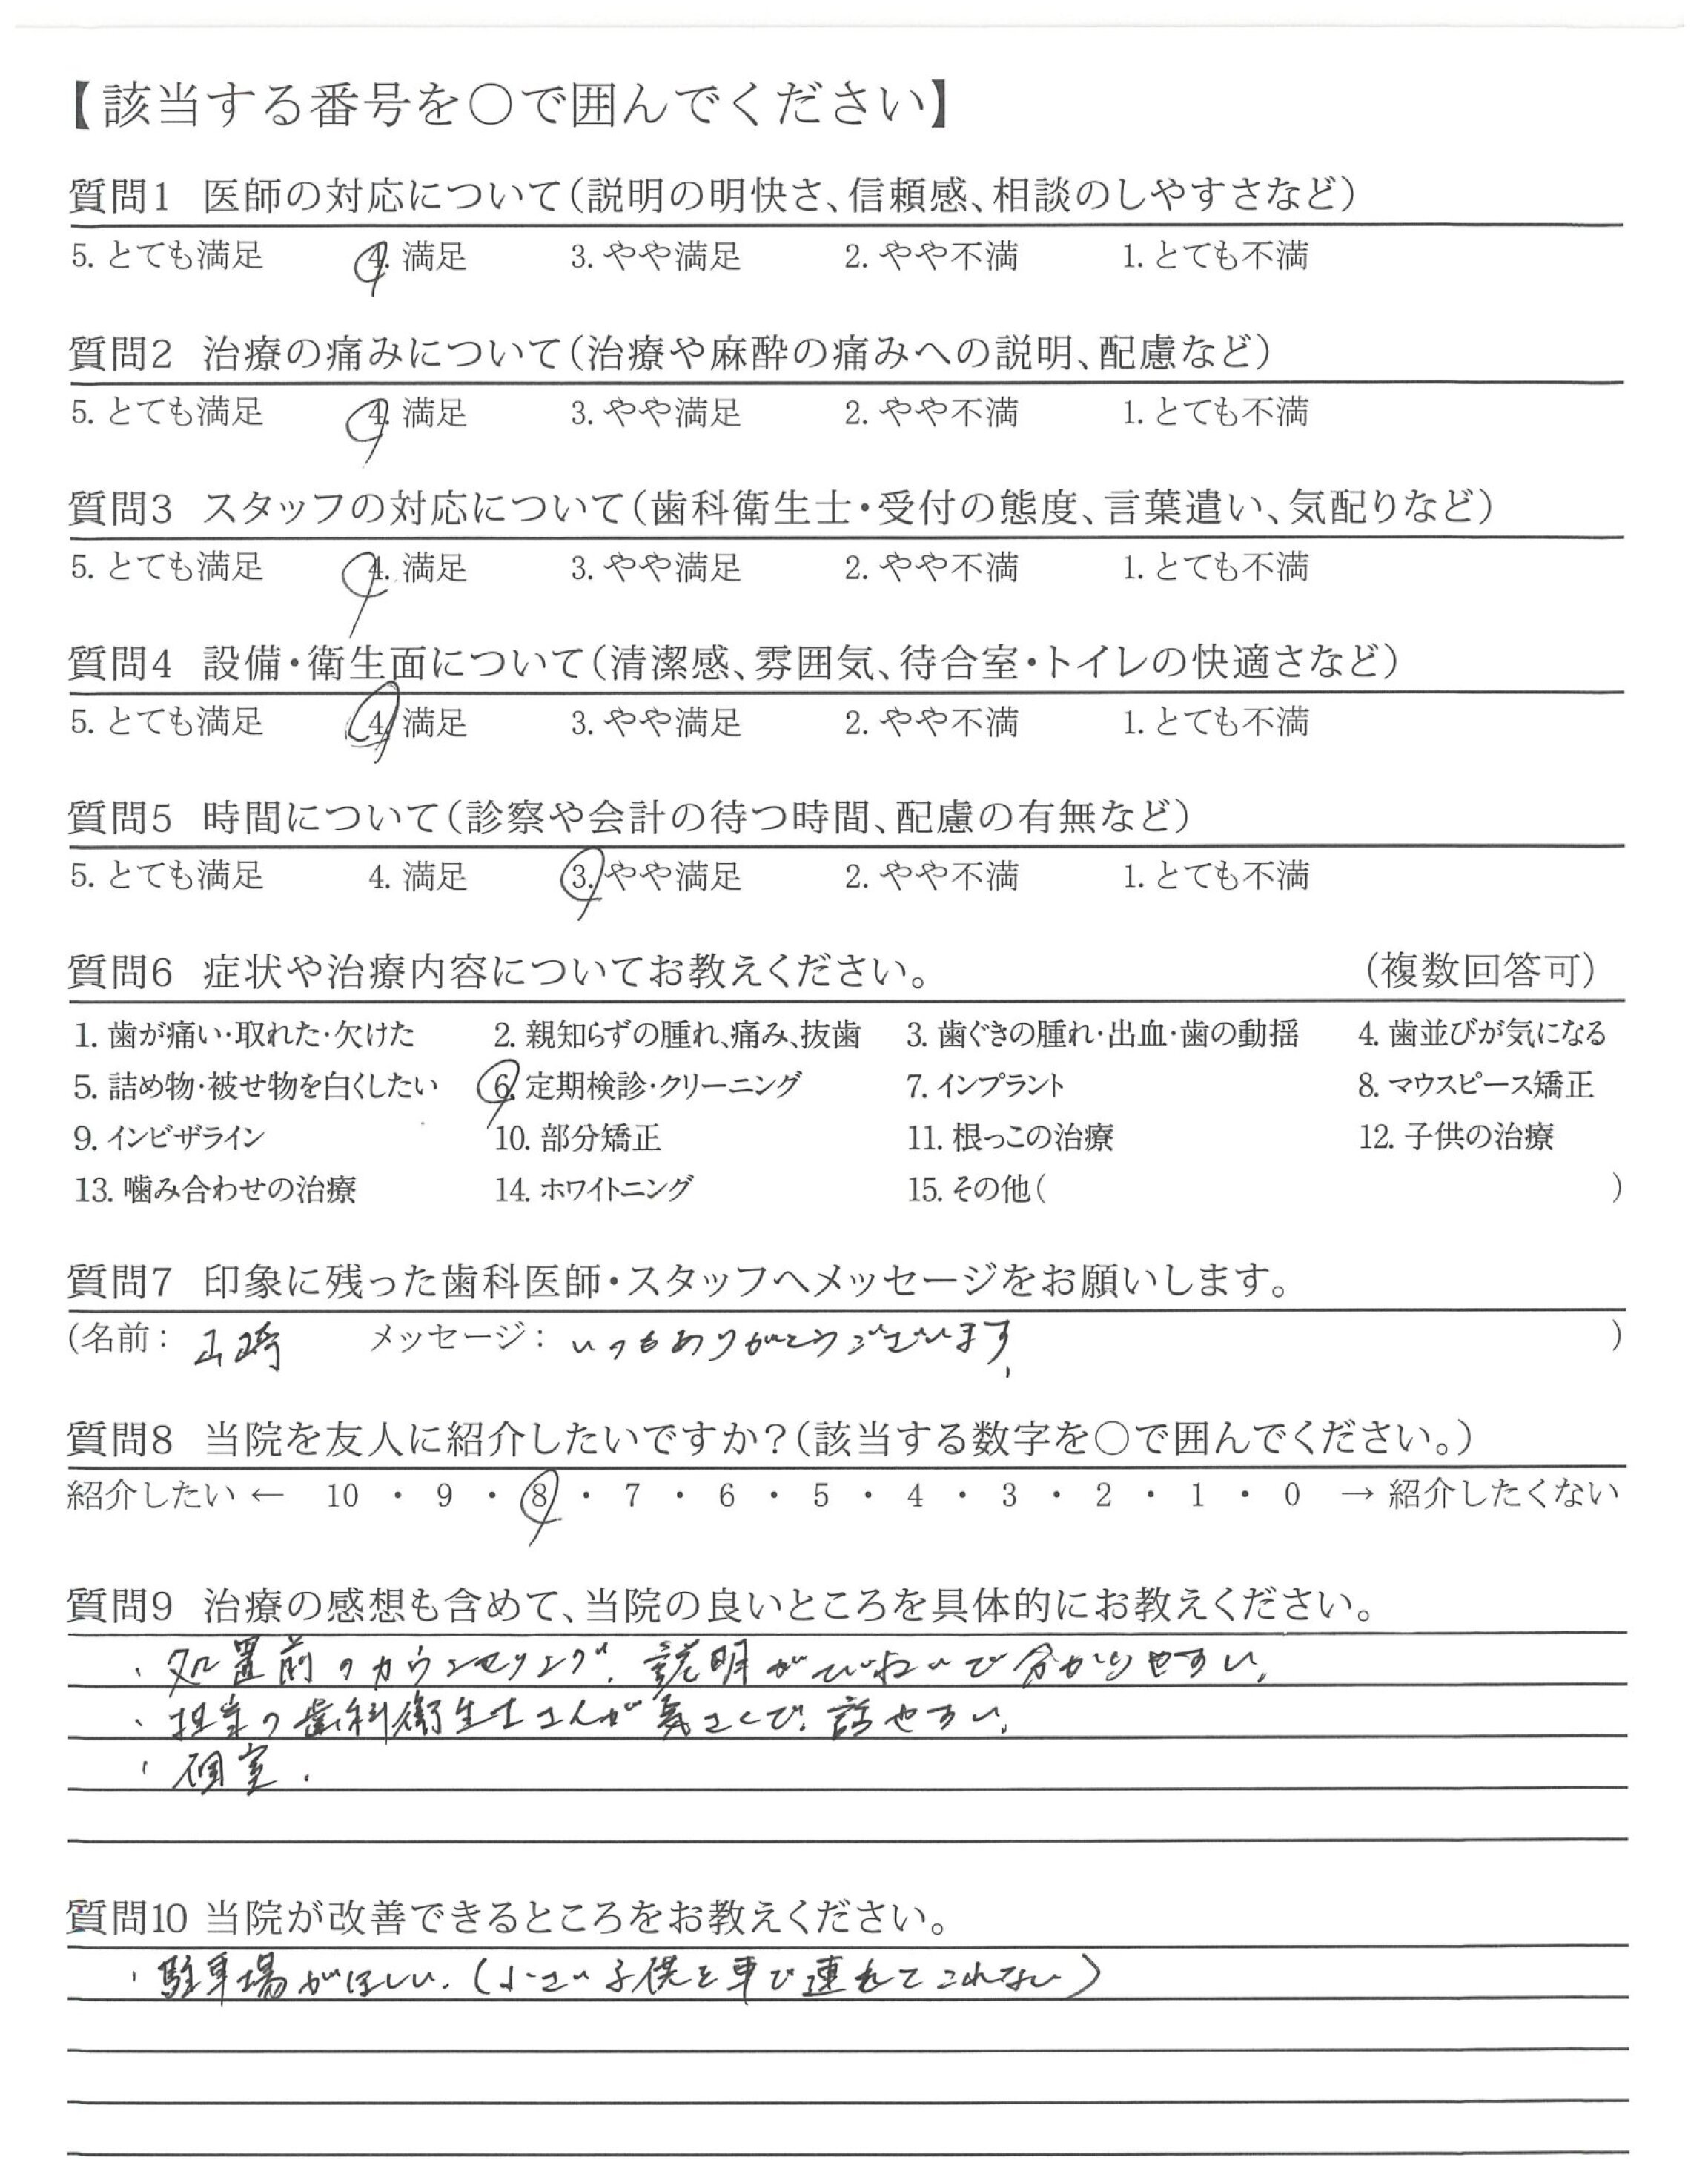 【該当する番号を○で囲んでください】
質問1 医師の対応について(説明の明快さ、信頼感、相談のしやすさなど)
5. とても満足 4. 満足 3. やや満足 2. やや不満 1. とても不満
質問2 治療の痛みについて(治療や麻酔の痛みへの説明、配慮など)
5. とても満足 4. 満足 3. やや満足 2. やや不満 1. とても不満
質問3 スタッフの対応について(歯科衛生士・受付の態度、言葉遣い、気配りなど)
5. とても満足 4. 満足 3. やや満足 2. やや不満 1. とても不満
質問4 設備・衛生面について(清潔感、雰囲気、待合室・トイレの快適さなど)
5. とても満足 4. 満足 3. やや満足 2. やや不満 1. とても不満
質問5 時間について(診察や会計の待つ時間、配慮の有無など)
5. とても満足 4. 満足 3. やや満足 2. やや不満 1. とても不満
質問6 症状や治療内容についてお教えください。 (複数回答可)
1. 歯が痛い・取れた・欠けた 2. 親知らずの腫れ、痛み、抜歯 3. 歯ぐきの腫れ・出血・歯の動揺 4. 歯並びが気になる
5. 詰め物・被せ物を白くしたい 6. 定期検診・クリーニング 7. インプラント 8. マウスピース矯正
9. インビザライン 10. 部分矯正 11. 根っこの治療 12. 子供の治療
13. 噛み合わせの治療 14. ホワイトニング 15. その他( )
質問7 印象に残った歯科医師・スタッフへメッセージをお願いします。
(名前: 山崎 メッセージ: いつもありがとうございます。 )
質問8 当院を友人に紹介したいですか?(該当する数字を○で囲んでください。)
紹介したい ← 10 ・ 9 ・ 8 ・ 7 ・ 6 ・ 5 ・ 4 ・ 3 ・ 2 ・ 1 ・ 0 → 紹介したくない
質問9 治療の感想も含めて、当院の良いところを具体的にお教えください。
・処置前のカウンセリング、説明がていねいで分かりやすい。
・担当の歯科衛生士さんが気さくで、話やすい。
・個室.
質問10 当院が改善できるところをお教えください。
・駐車場がほしい.(小さい子供を車で連れてこれない)